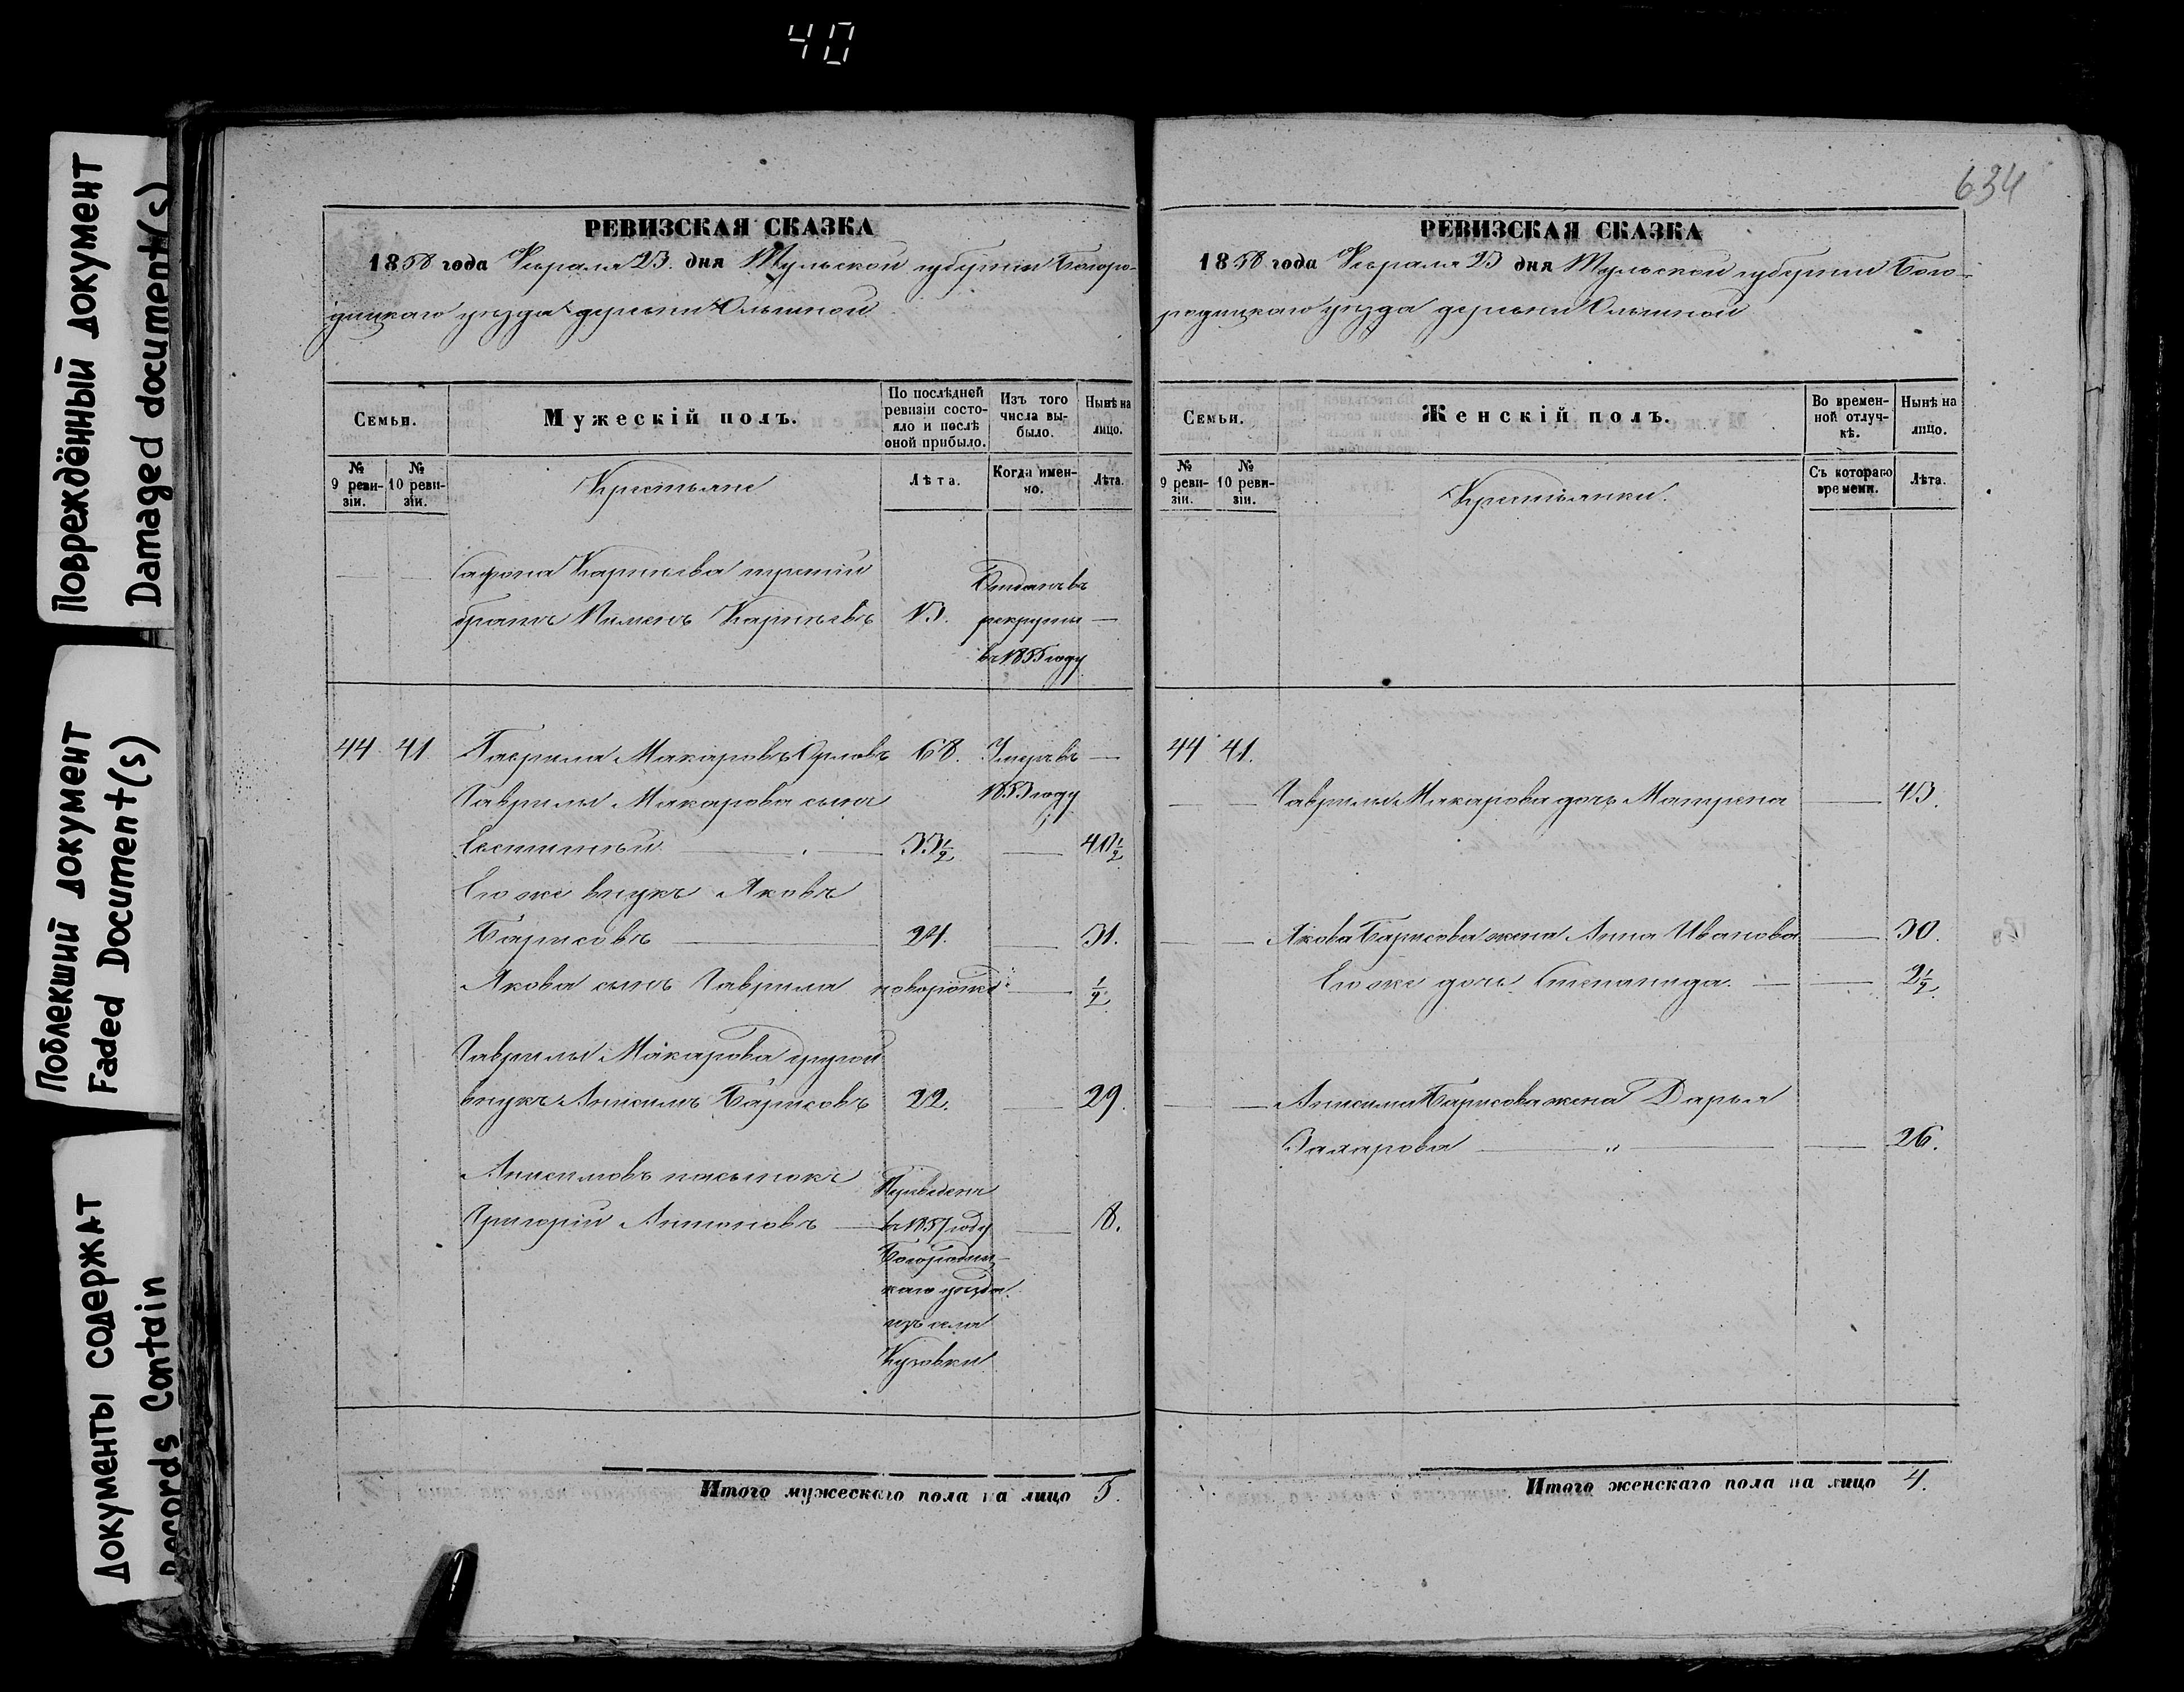 40
Повреждённый документ
Damaged document(s)
Поблекший документ
Faded Document(s)
Документы содержат
Records Contain
РЕВИЗСКАЯ СКАЗКА
1858 года Февраля 23. дня Тульской губернии Богоро-
дицкаго уѣзда деревни Ольшной
Семьи.
Мужескій полъ.
По послѣдней ревизіи состояло и послѣ оной прибыло.
Изъ того числа выбыло.
Нынѣ на лицо.
№ 9 ревизіи.
№ 10 ревизіи.
Крестьяне
Лѣта.
Когда именно.
Лѣта.
Сафона Карпѣева третий
братъ Пименъ Карпѣевъ 13. Отданъ въ рекруты въ 1855 году —
44. 41. Гаврила Макаровъ Орловъ 68. Умеръ въ 1853 году —
Гаврилы Макарова сынъ
33½ — 40½
Его же внукъ Яковъ
Барисовъ — 24. — 31.
Якова сынъ Гаврила новорожд: — ½
Гаврилы Макарова другой
внукъ Анисимъ Барисовъ 22. — 29.
Анисимовъ пасынокъ
Григорий Антоновъ — Приведенъ
въ 1857 году — 8.
Богородиц-
каго уѣзда
изъ села
Кузовки
Итого мужескаго пола на лицо 5.
634
РЕВИЗСКАЯ СКАЗКА
1858 года Февраля 23 дня Тульской губернии Бого-
родицкаго уѣзда деревни Ольшной
Семьи.
Женскій полъ.
Во временной отлучкѣ.
Нынѣ на лицо.
№ 9 ревизіи.
№ 10 ревизіи.
Крестьянки.
Съ котораго времени.
Лѣта.
44 41.
Гаврилы Макарова дочь Матрена — 43.
Якова Барисова жена Анна Иванова — 30.
Его же дочь Степанида. — 2½.
Анисима Барисова жена Дарья
Захарова — " — 26.
Итого женскаго пола на лицо 4.